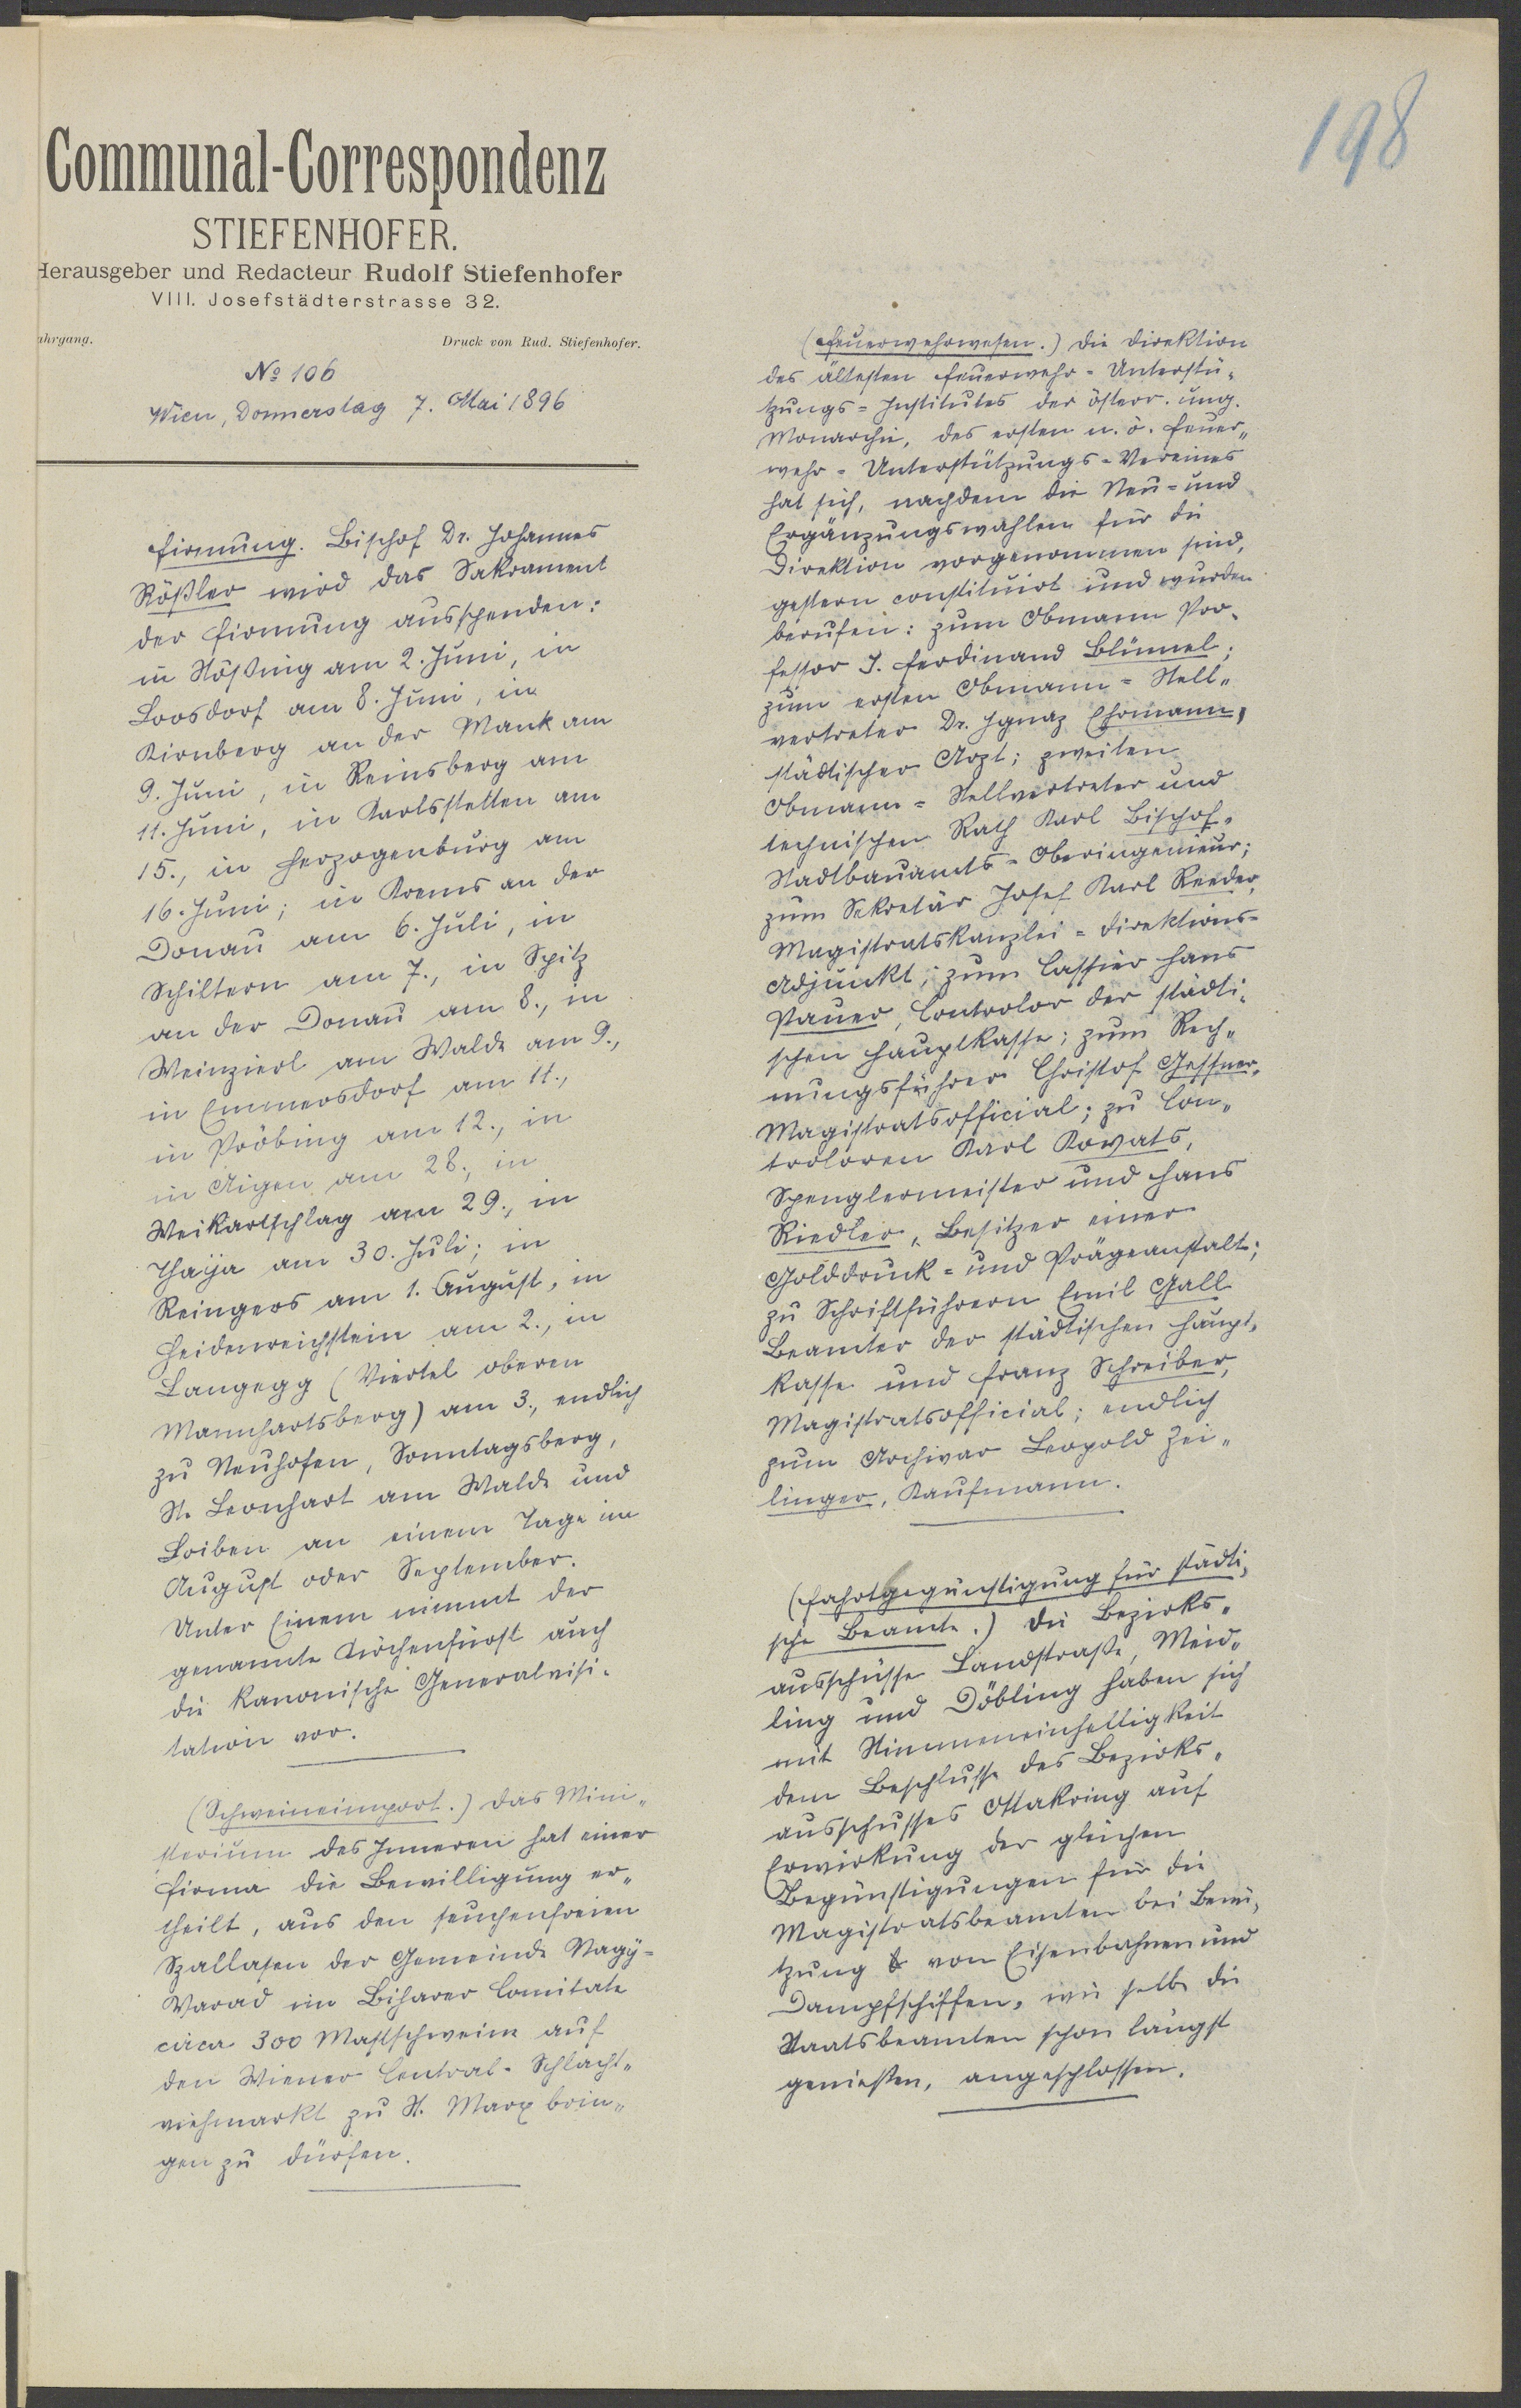 198
Communal-Correspondenz
STIEFENHOFER.
Herausgeber und Redacteur Rudolf Stiefenhofer
VIII. Josefstädterstrasse 32.
ahrgang. Druck von Rud. Stiefenhofer.
No 106
Wien, Donnerstag 7. Mai 1896
Firmung. Bischof Dr. Johannes
Rößler wird das Sakrament
der Firmung ausspenden:
in Stößing am 2. Juni, in
Loosdorf am 8. Juni, in
Kirnberg an der Mank am
9. Juni, in Reinsberg am
11. Juni, in Karlsstetten am
15., in Herzogenburg am
16. Juni; in Krems an der
Donau am 6. Juli, in
Schiltern am 7., in Spitz
an der Donau am 8., in
Weinzierl am Walde am 9.,
in Emmersdorf am 11.,
in Pröbing am 12., in
in Aigen am 28., in
Weikartschlag am 29., in
Thaya am 30. Juli; in
Reingers am 1. August, in
Heidenreichstein am 2., in
Langegg (Viertel oberen
Mannhartsberg) am 3., endlich
zu Neuhofen, Sonntagsberg,
St. Leonhart am Walde und
Loiben an einem Tage im
August oder September.
Unter Einem nimmt der
genannte Kirchenfürst auch
die kanonische Generalvisi-
tation vor.
(Schweineimport.) Das Mini-
sterium des Inneren hat einer
Firma die Bewilligung er-
theilt, aus den seuchenfreien
Szallasen der Gemeinde Nagy-
Varad im Biharer Comitate
circa 300 Mastschweine auf
den Wiener Central-Schlacht-
viehmarkt zu St. Marx brin-
gen zu dürfen.
(Feuerwehrwesen.) Die Direktion
des ältesten Feuerwehr-Unterstü-
tzungs-Institutes der österr. ung.
Monarchie, des ersten n. ö. Feuer-
wehr-Unterstützungs-Vereines
hat sich, nachdem die Neu- und
Ergänzungswahlen für die
Direktion vorgenommen sind,
gestern constituirt und wurden
berufen: zum Obmann Pro-
fessor J. Ferdinand Blümel;
zum ersten Obmann-Stell-
vertreter Dr. Ignaz Ehrmann,
städtischer Arzt; zweiten
Obmann-Stellvertreter und
technischen Rath Karl Bischof,
Stadtbauamts-Oberingenieur;
zum Sekretär Josef Karl Reeder,
Magistratskanzlei-Direktions-
Adjunkt; zum Cassier Hans
Pauer, Controlor der städti-
schen Hauptkasse; zum Rech-
nungsführer Christof Gessner,
Magistratsofficial; zu Con-
troloren Karl Kovats,
Spenglermeister und Hans
Riedler, Besitzer einer
Golddruck- und Prägeanstalt;
zu Schriftführern Emil Gall
Beamter der städtischen Haupt-
kasse und Franz Schreiber,
Magistratsofficial; endlich
zum Archivar Leopold Zei-
linger, Kaufmann.
(Fahrtbegünstigung für städti-
sche Beamte.) Die Bezirks-
ausschüsse Landstraße, Meid-
ling und Döbling haben sich
mit Stimmeneinhelligkeit
dem Beschlusse des Bezirks-
ausschusses Ottakring auf
Erwirkung der gleichen
Begünstigungen für die
Magistratsbeamten bei Benü-
tzung von Eisenbahnen und
Dampfschiffen, wie selbe die
Staatsbeamten schon längst
genießen, angeschlossen.